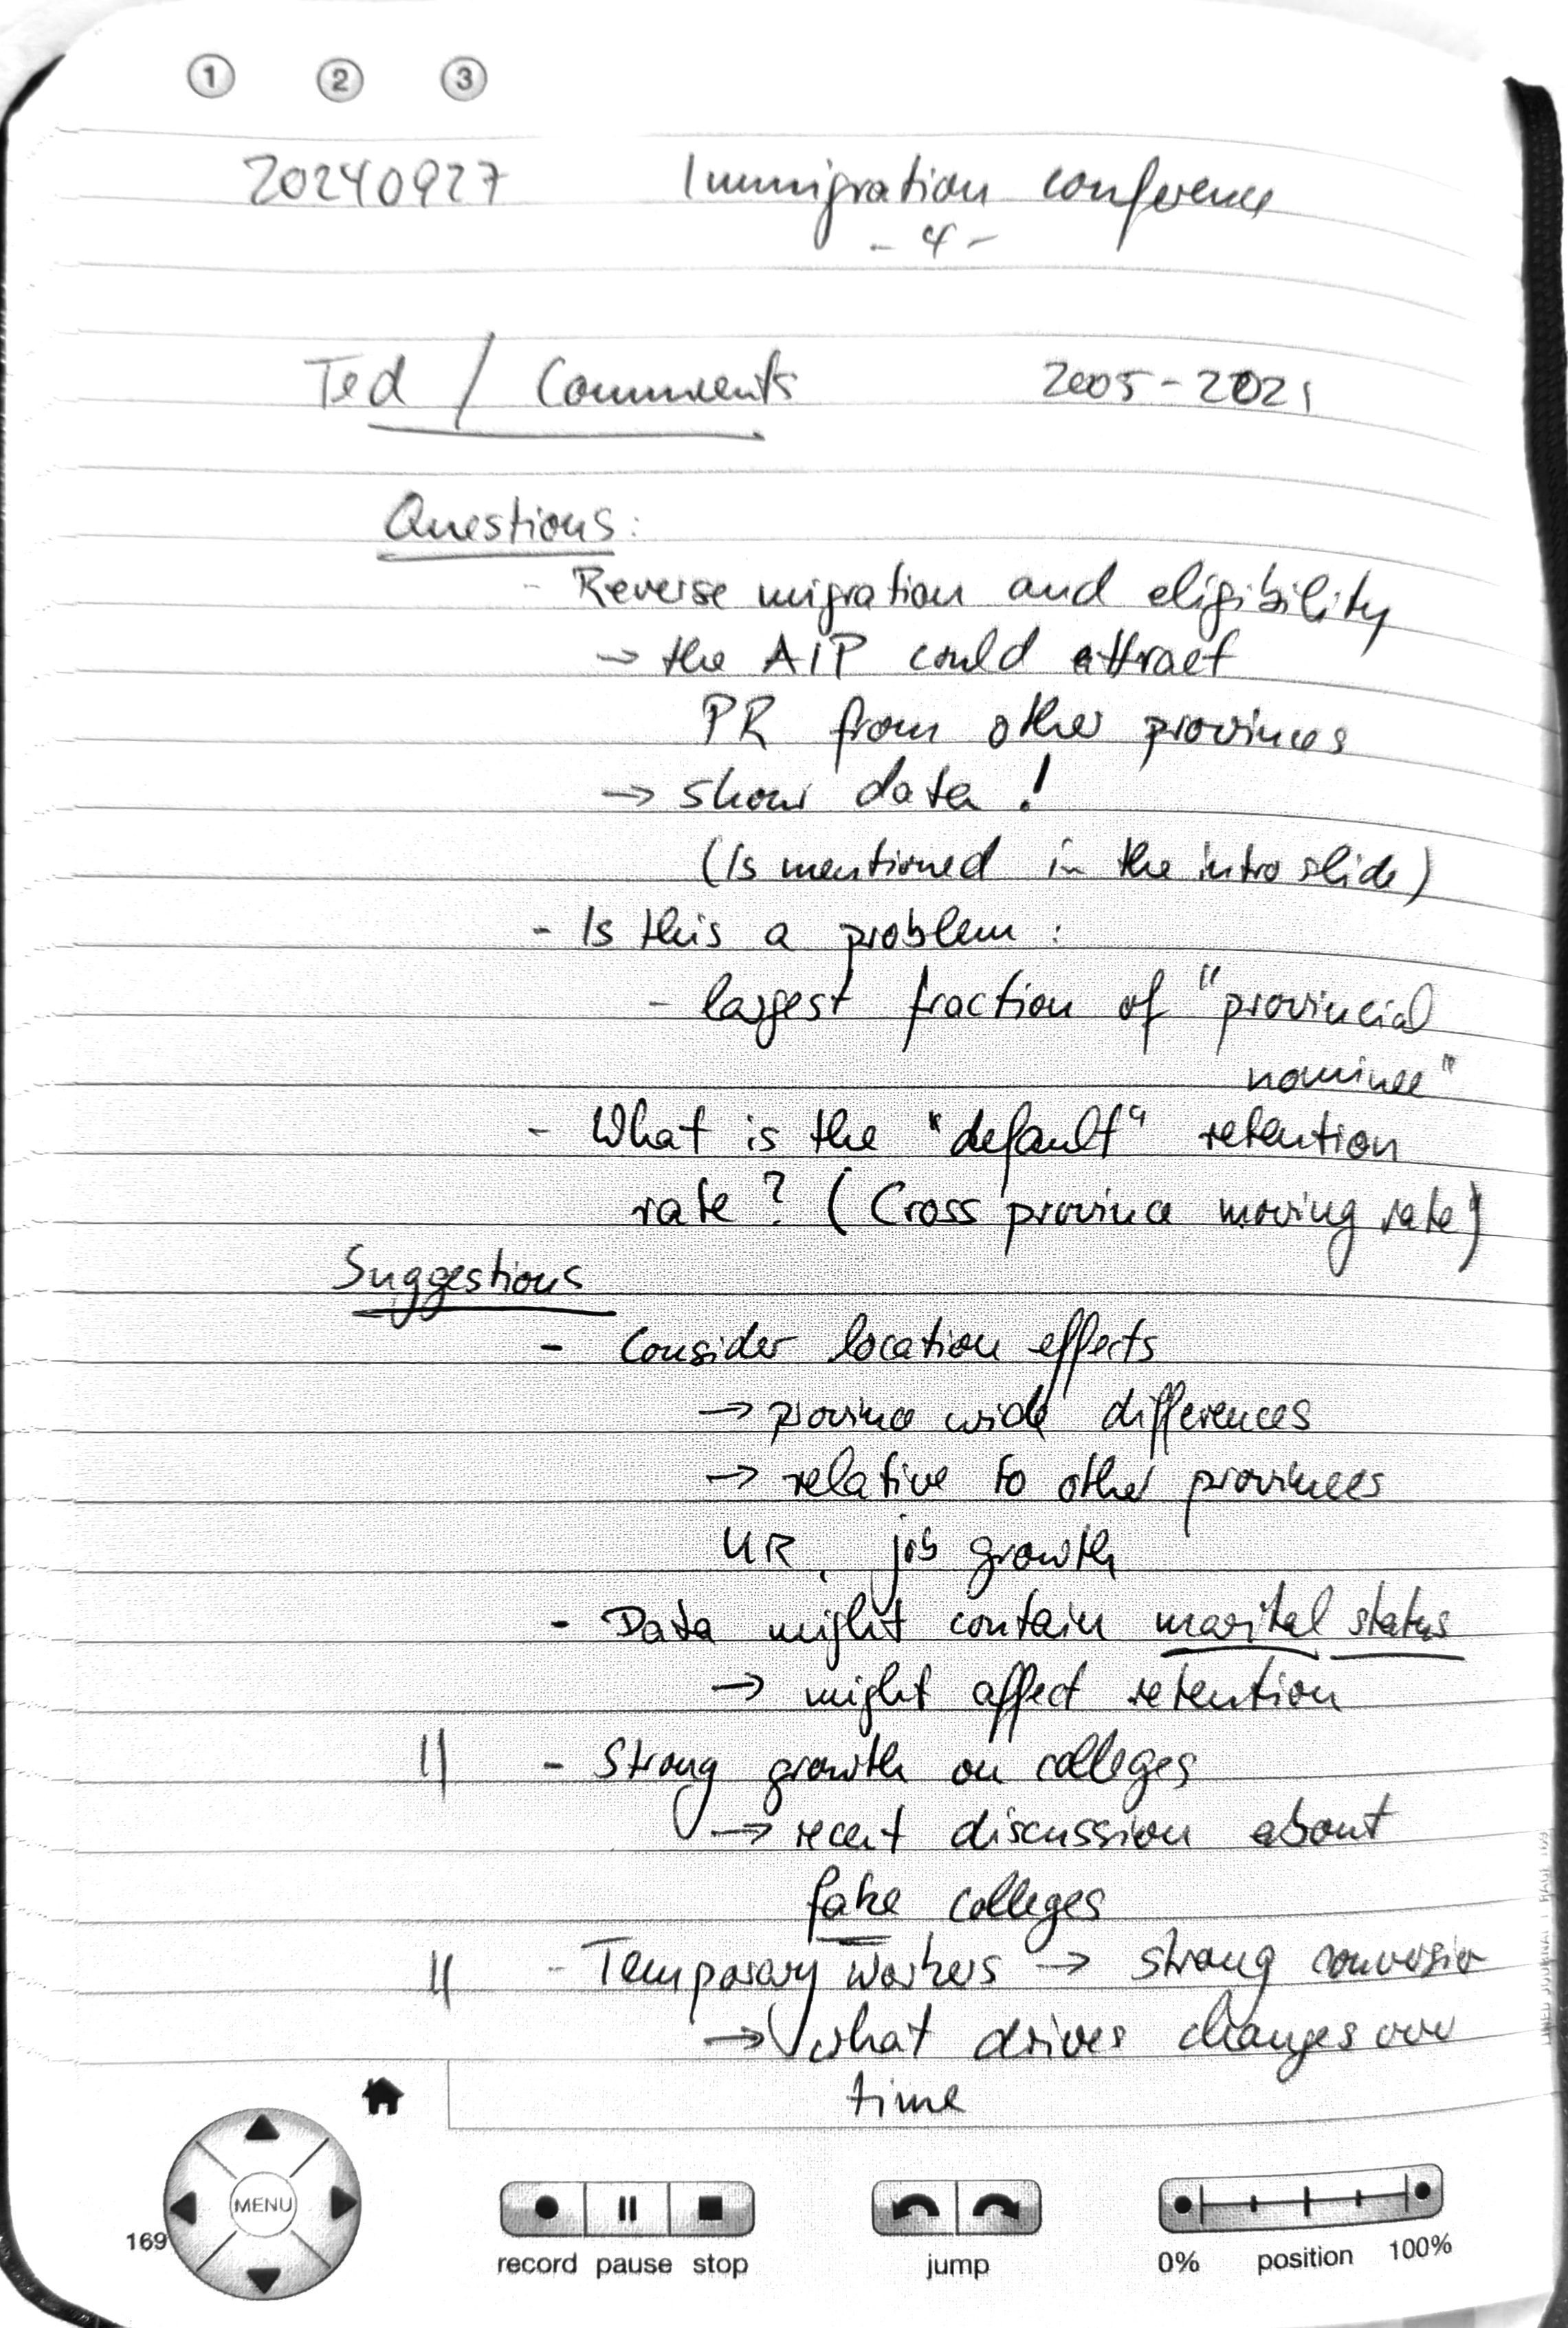 1 2 3
20240927 Immigration conference
- 4 -
Ted / Comments 2005-2021
Questions:
- Reverse migration and eligibility
→ the AIP could attract
PR from other provinces
→ show data !
(Is mentioned in the intro slide)
- Is this a problem :
- largest fraction of "provincial
nominee"
- What is the "default" retention
rate? (Cross province moving rate)
Suggestions
- Consider location effects
→ province wide differences
→ relative to other provinces
UR, job growth
- Data might contain marital status
→ might affect retention
|| - Strong growth on colleges
→ recent discussion about
fake colleges
|| - Temporary workers → strong conversion
→ what drives changes over
time
MENU
169
record pause stop
jump
0% position 100%